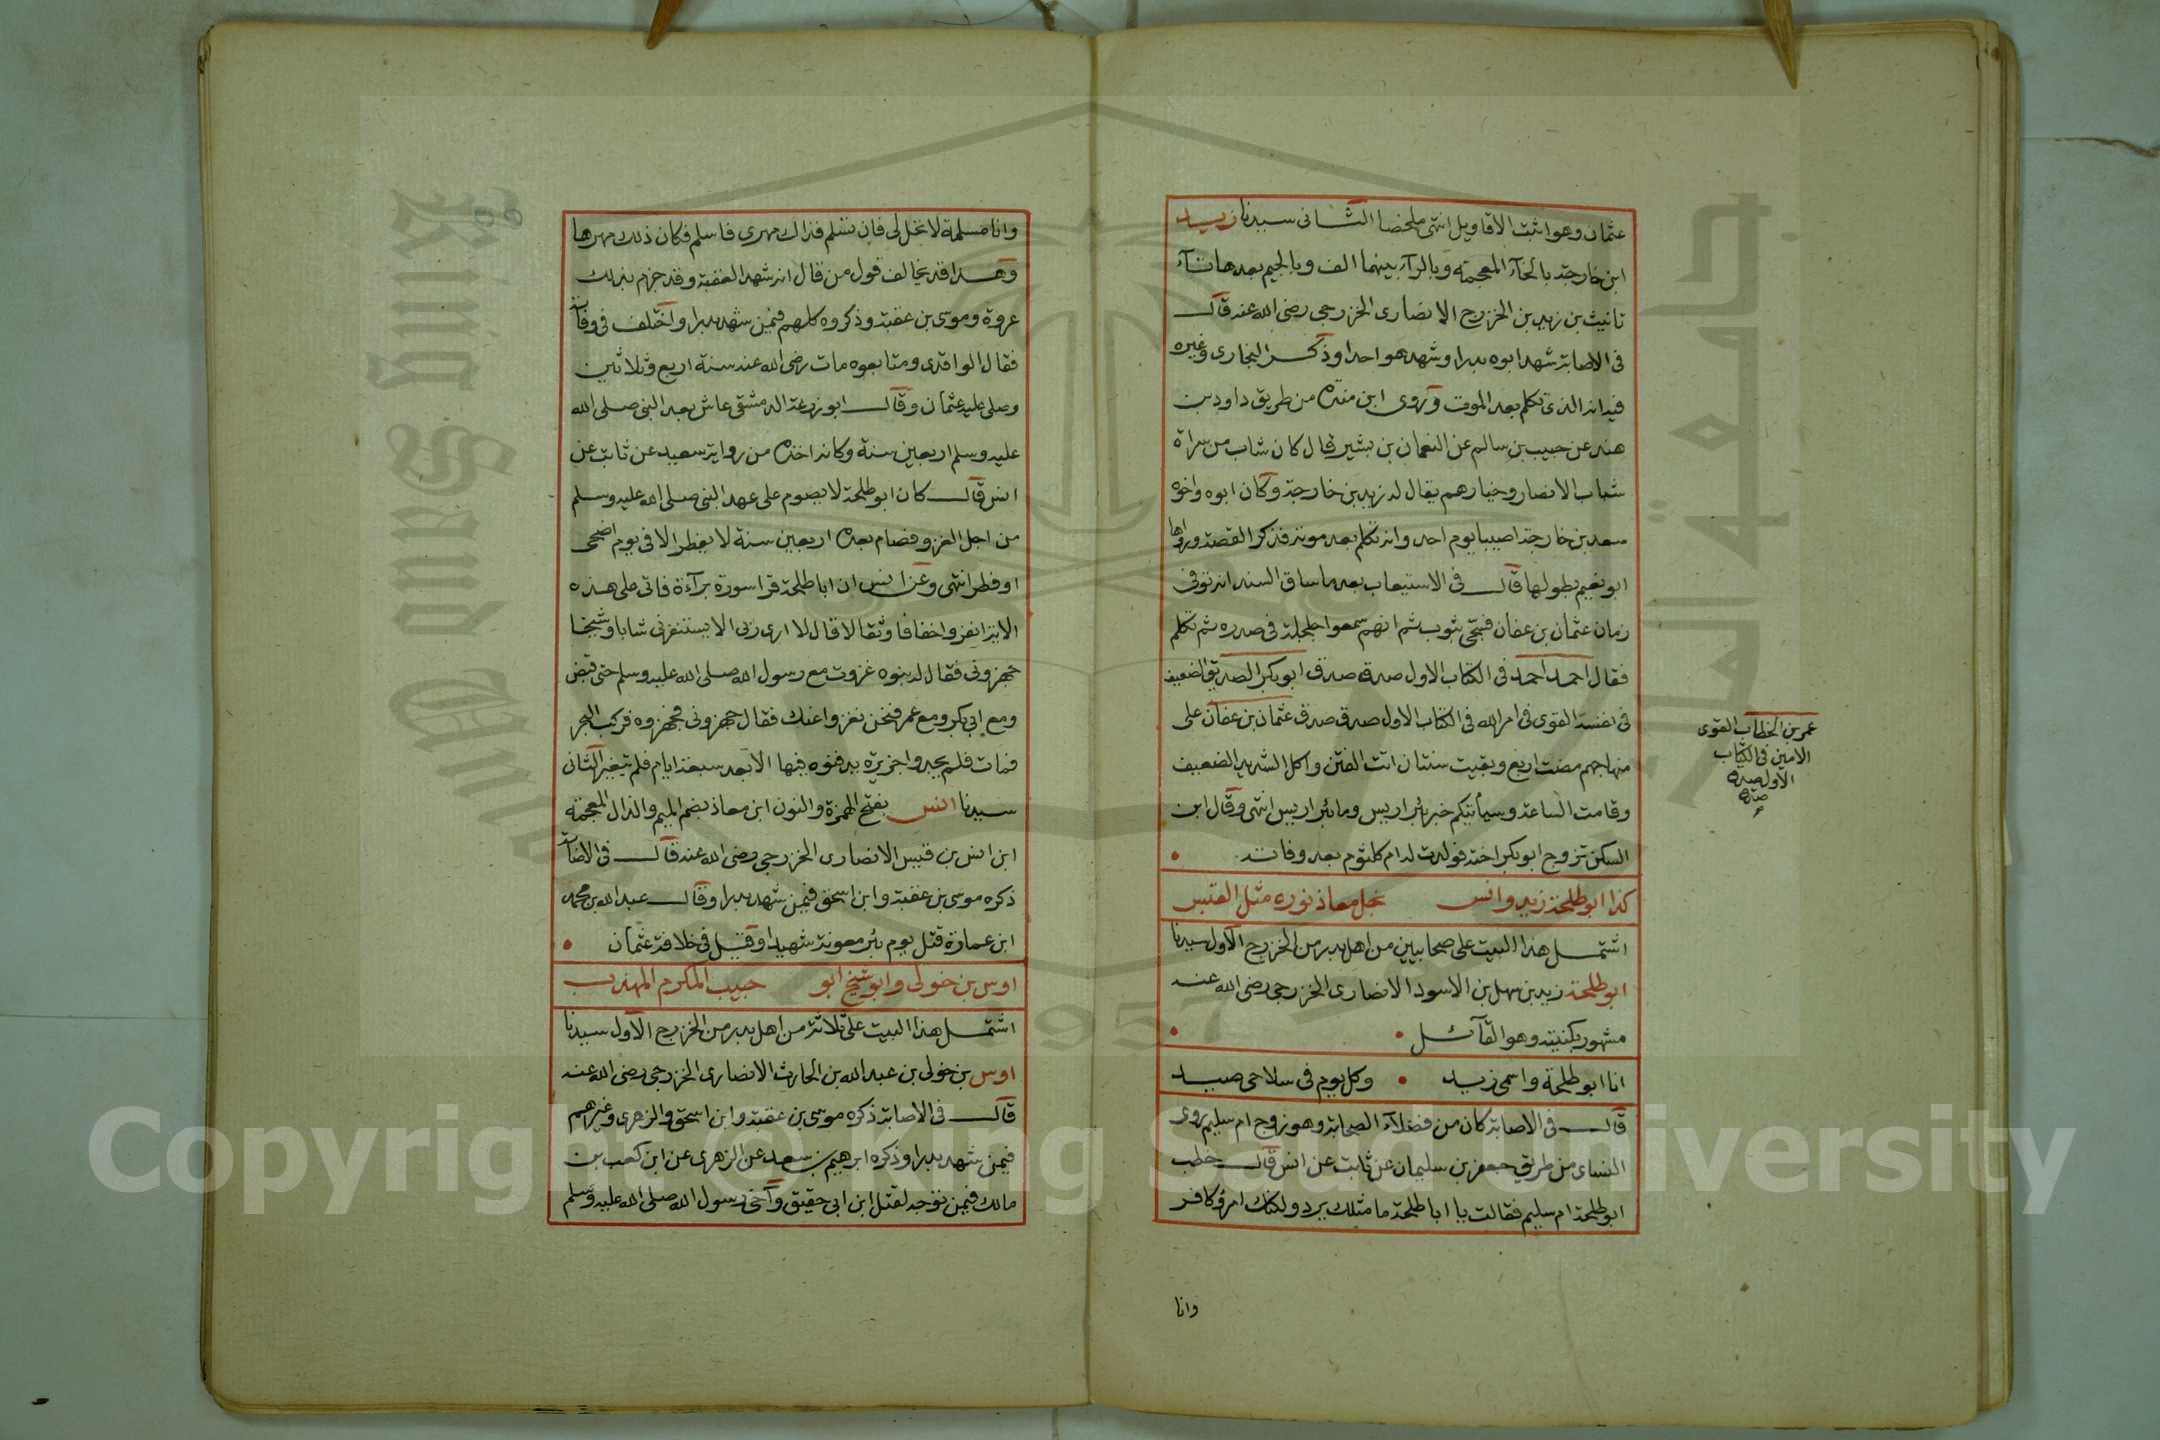 عثمان وهو اثبت الاقاويل انتهى ملخصا الثاني سيدنا زيد
ابن خارجة بالخآء المعجمة وبالرآء بينهما الف وبالجيم بعدها تآء
تانيث بن زيد بن الخزرج الانصارى الخزرجى رضى الله عنه قال
فى الاصابة شهد ابوه بدرا وشهد هو احدا وذكر البخارى وغيره
فيه انه الذى تكلم بعد الموت وروى ابن منده من طريق داود بن
هند عن حبيب بن سالم عن النعمان بن بشير قال كان شاب من سراة
شباب الانصار وخيارهم يقال له زيد بن خارجة وكان ابوه واخوه
سعد بن خارجة اصيبا يوم احد وانه تكلم بعد موته فذكر القصة ورواها
ابو نعيم بطولها قال فى الاستيعاب بعد ما ساق السند انه توفى
زمان عثمان بن عفان فسجى بثوب ثم انهم سمعوا جلجلة فى صدره ثم تكلم
فقال احمد احمد فى الكتاب الاول صدق صدق ابو بكر الصديق الضعيف
فى نفسه القوى فى امر الله فى الكتاب الاول صدق صدق عثمان بن عفان على
منهاجهم مضت اربع وبقيت سنتان اتت الفتن واكل الشديد الضعيف
وقامت الساعة وسيأتيكم خبر بئر اريس وما بئر اريس انتهى وقال ابن
السكن تزوج ابو بكر اخته فولدت له ام كلثوم بعد وفاته
كذا ابو طلحة زيد وانس نجل معاذ نوره مثل القبس
اشتمل هذا البيت على صحابيين من اهل بدر من الخزرج الاول سيدنا
ابو طلحة زيد بن سهل بن الاسود الانصارى الخزرجى رضى الله عنه
مشهور بكنيته وهو القآئل
انا ابو طلحة واسمى زيد وكل يوم فى سلاحى صيد
قال فى الاصابة كان من فضلآء الصحابة وهو زوج ام سليم روى
النساى من طريق جعفر بن سليمان عن ثابت عن انس قال خطب
ابو طلحة ام سليم فقالت يا ابا طلحة ما مثلك يرد ولكنك امرؤ كافر
وانا
عمر بن الخطاب القوى
الامين فى الكتاب
الاول صدق
صدق
وانا مسلمة لا تحل لى فان تسلم فذاك مهرى فاسلم فكان ذلك مهرها
وهذا قد يخالف قول من قال انه شهد العقبة وقد جزم بذلك
عروة وموسى بن عقبة وذكروه كلهم فيمن شهد بدرا واختلف فى وفاته
فقال الواقدى ومتابعوه مات رضى الله عنه سنة اربع وثلاثين
وصلى عليه عثمان وقال ابو زرعة الدمشقى عاش بعد النبى صلى الله
عليه وسلم اربعين سنة وكانه اخذه من رواية سعيد عن ثابت عن
انس قال كان ابو طلحة لا يصوم على عهد النبى صلى الله عليه وسلم
من اجل الغزو فصام بعده اربعين سنة لا يفطر الا فى يوم اضحى
او فطر انتهى وعن انس ان ابا طلحة قرا سورة برآءة فاتى على هذه
الاية انفروا خفافا وثقالا قال لا ارى ربى الا يستنفرنى شابا وشيخا
جهزونى فقال له بنوه غزوت مع رسول الله صلى الله عليه وسلم حتى قبض
ومع ابى بكر ومع عمر فنحن نغزوا عنك فقال جهزونى فجهزوه فركب البحر
فمات فلم يجدوا جزيرة يدفنوه فيها الا بعد سبعة ايام فلم يتغير الثانى
سيدنا انس بفتح الهمزة والنون ابن معاذ بضم الميم والذال المعجمة
ابن انس بن قيس الانصارى الخزرجى رضى الله عنه قال فى الاصابة
ذكره موسى بن عقبة وابن اسحق فيمن شهد بدرا وقال عبد الله بن محمد
ابن عمارة قتل يوم بئر معونة شهيدا وقيل فى خلافة عثمان
اوس بن خولى وابو شيخ ابو حبيب المكرم المهذب
اشتمل هذا البيت على ثلاثة من اهل بدر من الخزرج الاول سيدنا
اوس بن خولى بن عبد الله بن الحارث الانصارى الخزرجى رضى الله عنه
قال فى الاصابة ذكره موسى بن عقبة وابن اسحق والزهرى وغيرهم
فيمن شهد بدرا وذكره ابرهيم بن سعد عن الزهرى عن ابن كعب بن
مالك فيمن توجه لقتل ابن ابى حقيق وآخى رسول الله صلى الله عليه وسلم
King Saud University
جامعة الملك
1957
Copyright © King Saud University